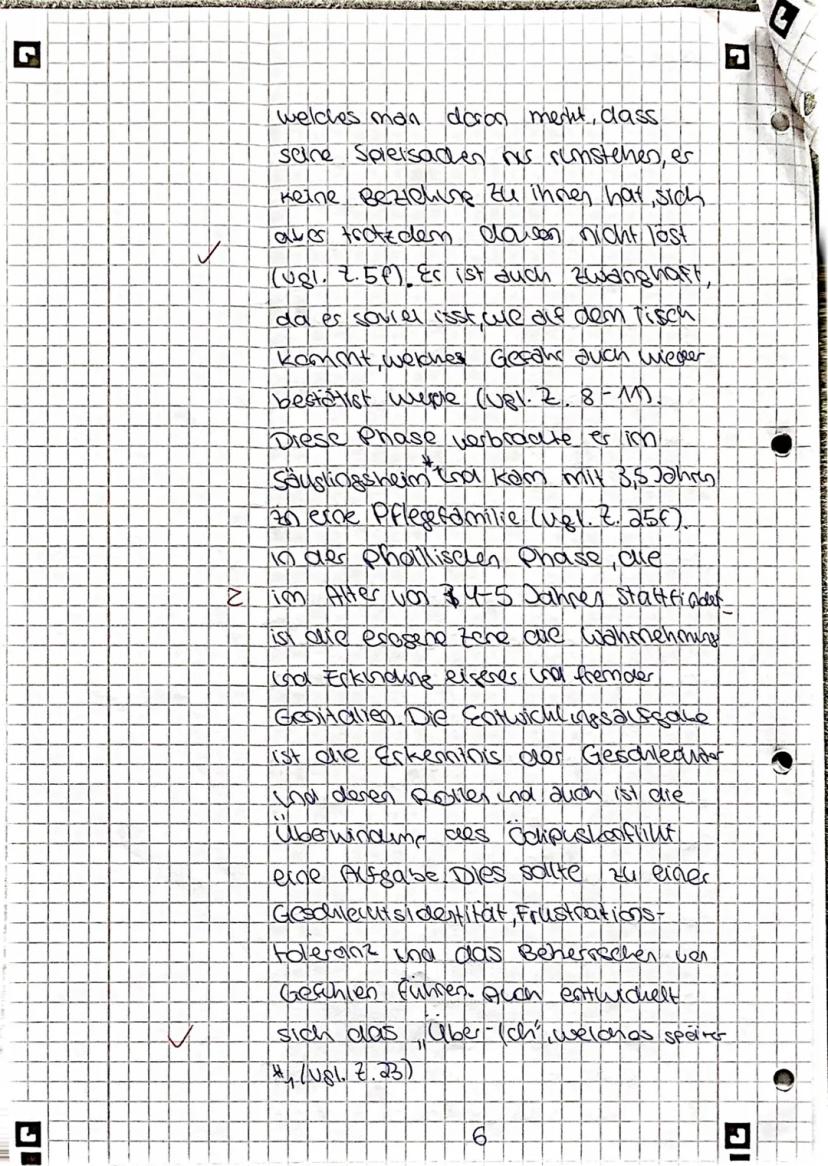 welches man daran merkt, dass
seine Spielsachen nur rumstehen, er
keine Beziehung zu ihnen hat, sich
aber trotzdem davon nicht löst
(vgl. Z. 5f). Er ist auch zwanghaft,
da er soviel isst, wie auf dem Tisch
kommt, welches Gefühl auch wieder
bestätigt wurde (vgl. Z. 8-11).
Diese Phase verbrachte er im
Säuglingsheim* und kam mit 3,5 Jahren
in eine Pflegefamilie (vgl. Z. 25f).
in der phallischen Phase, die
Z im Alter von 4-5 Jahren stattfindet
ist die erogene Zone die Wahrnehmung
und Erkundung eigener und fremder
Genitalien. Die Entwicklungsaufgabe
ist die Erkenntnis der Geschlechter
und deren Rollen und auch ist die
Überwindung des Ödipuskonflikt
eine Aufgabe. Dies sollte zu einer
Geschlechtsidentität, Frustrations-
toleranz und das Beherrschen von
Gefühlen führen. Auch entwickelt
sich das „Über-Ich", welches später
*1 (vgl. Z. 23)
6